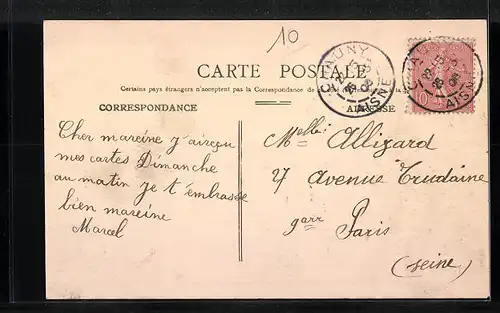 10
CHAUNY
AISNE
CARTE POSTALE
Certains pays étrangers n'acceptent pas la Correspondance de
CORRESPONDANCE
ADRESSE
Cher mareine j'aireçu
mes cartes Dimanche
au matin je t'embrasse
bien mareine
Marcel
Melle Alligard
27 avenue Trudaine
9 arr Paris
(seine)